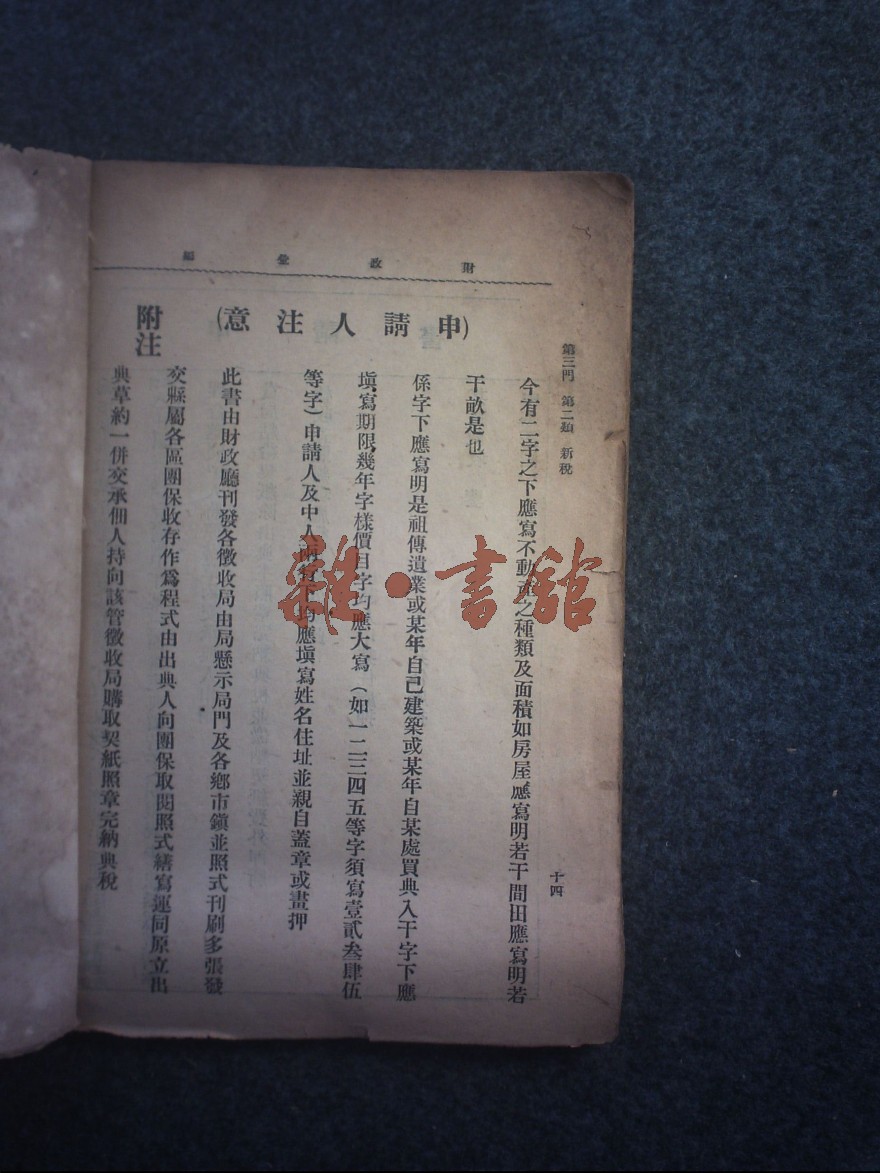 財政彙編
第三門 第二類 新稅
十四
(申請人注意)
今有二字之下應寫不動產之種類及面積如房屋應寫明若干間田應寫明若
干畝是也
係字下應寫明是祖傳遺業或某年自己建築或某年自某處買典入干字下應
塡寫期限幾年字樣價目字均應大寫(如一二三四五等字須寫壹貳叁肆伍
等字)申請人及中人兩名下均應塡寫姓名住址並親自蓋章或畫押
附注
此書由財政廳刊發各徵收局由局懸示局門及各鄉市鎭並照式刊刷多張發
交縣屬各區團保收存作爲程式由出典人向團保取閱照式繕寫運同原立出
典草約一併交承佃人持向該管徵收局購取契紙照章完納典稅
雜·書舘